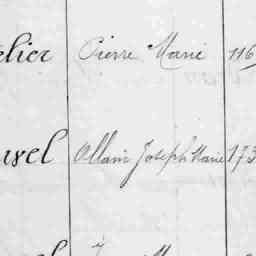 elier Pierre Marie 116
uvel Allain Joseph Marie 173